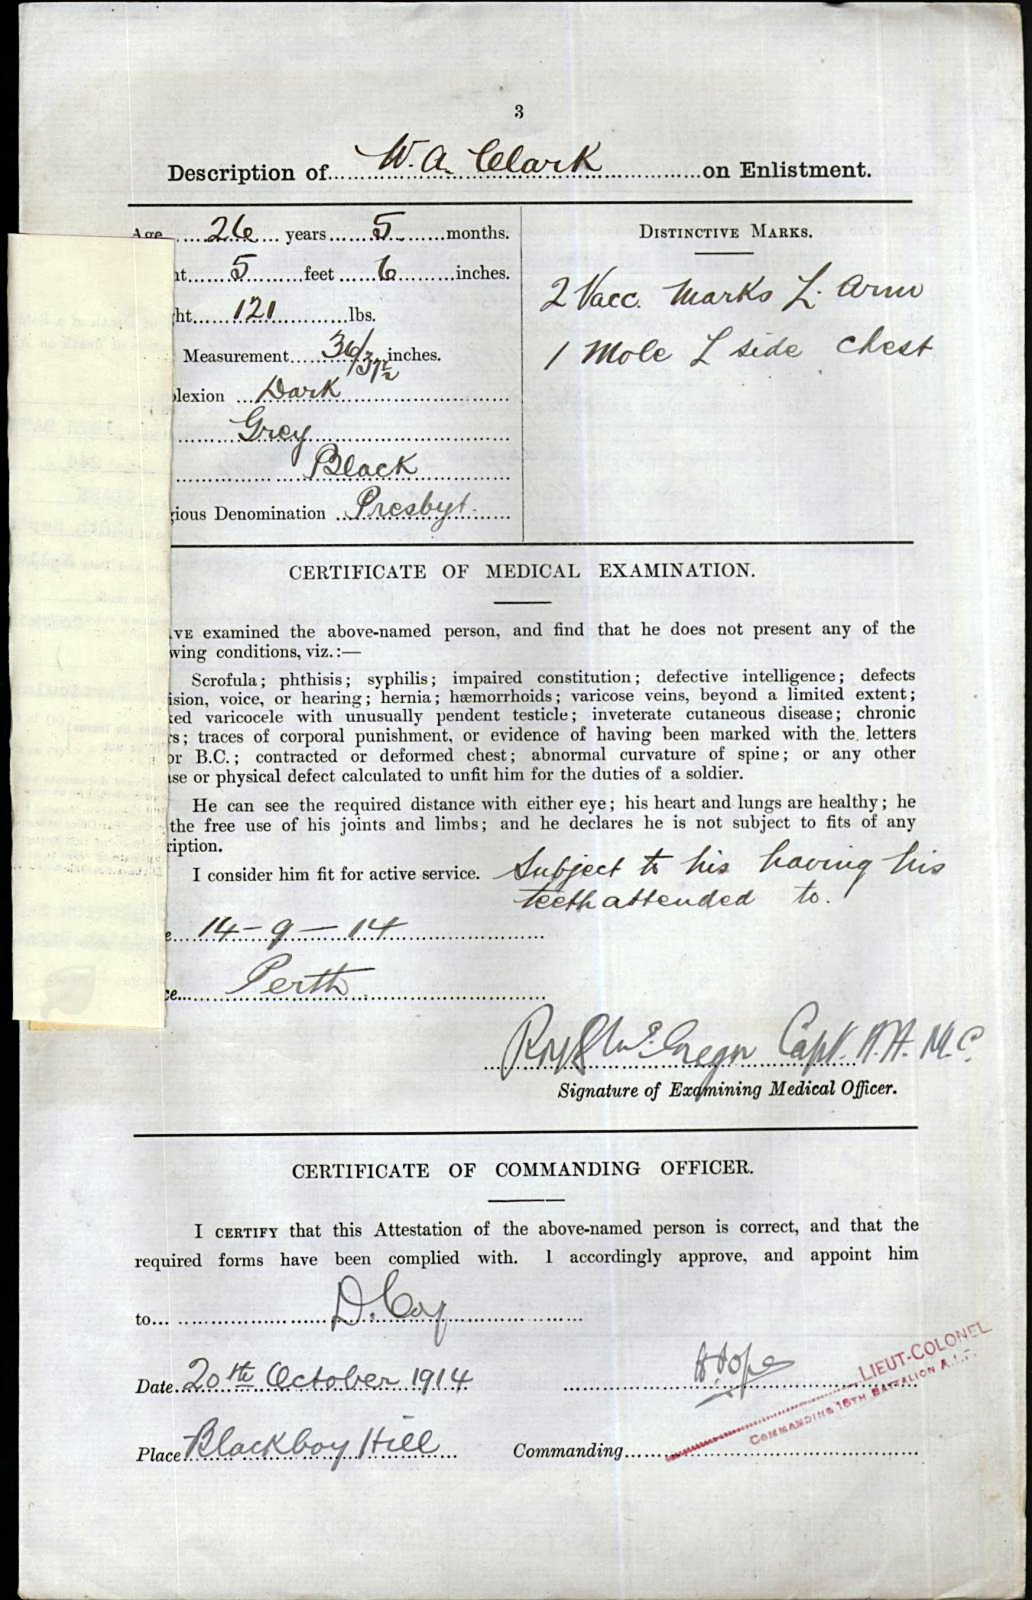 3
Description of W. A. Clark on Enlistment.
Age 26 years 5 months.
ht 5 feet 6 inches.
ght 121 lbs.
Measurement 36/37½ inches.
plexion Dark
Grey
Black
gious Denomination Presbyt.
DISTINCTIVE MARKS.
2 Vacc. Marks L. Arm
1 Mole L side chest
CERTIFICATE OF MEDICAL EXAMINATION.
AVE examined the above-named person, and find that he does not present any of the
wing conditions, viz.:—
Scrofula; phthisis; syphilis; impaired constitution; defective intelligence; defects
ision, voice, or hearing; hernia; hæmorrhoids; varicose veins, beyond a limited extent;
ked varicocele with unusually pendent testicle; inveterate cutaneous disease; chronic
rs; traces of corporal punishment, or evidence of having been marked with the letters
or B.C.; contracted or deformed chest; abnormal curvature of spine; or any other
ase or physical defect calculated to unfit him for the duties of a soldier.
He can see the required distance with either eye; his heart and lungs are healthy; he
the free use of his joints and limbs; and he declares he is not subject to fits of any
ription.
I consider him fit for active service. Subject to his having his
teeth attended to.
e 14-9-14
ce Perth
McGregor Capt. A.A.M.C.
Signature of Examining Medical Officer.
CERTIFICATE OF COMMANDING OFFICER.
I CERTIFY that this Attestation of the above-named person is correct, and that the
required forms have been complied with. I accordingly approve, and appoint him
to D. Coy
Date 20th October 1914
H Pope
LIEUT-COLONEL
COMMANDING 16TH BATTALION A.I.F.
Place Blackboy Hill
Commanding